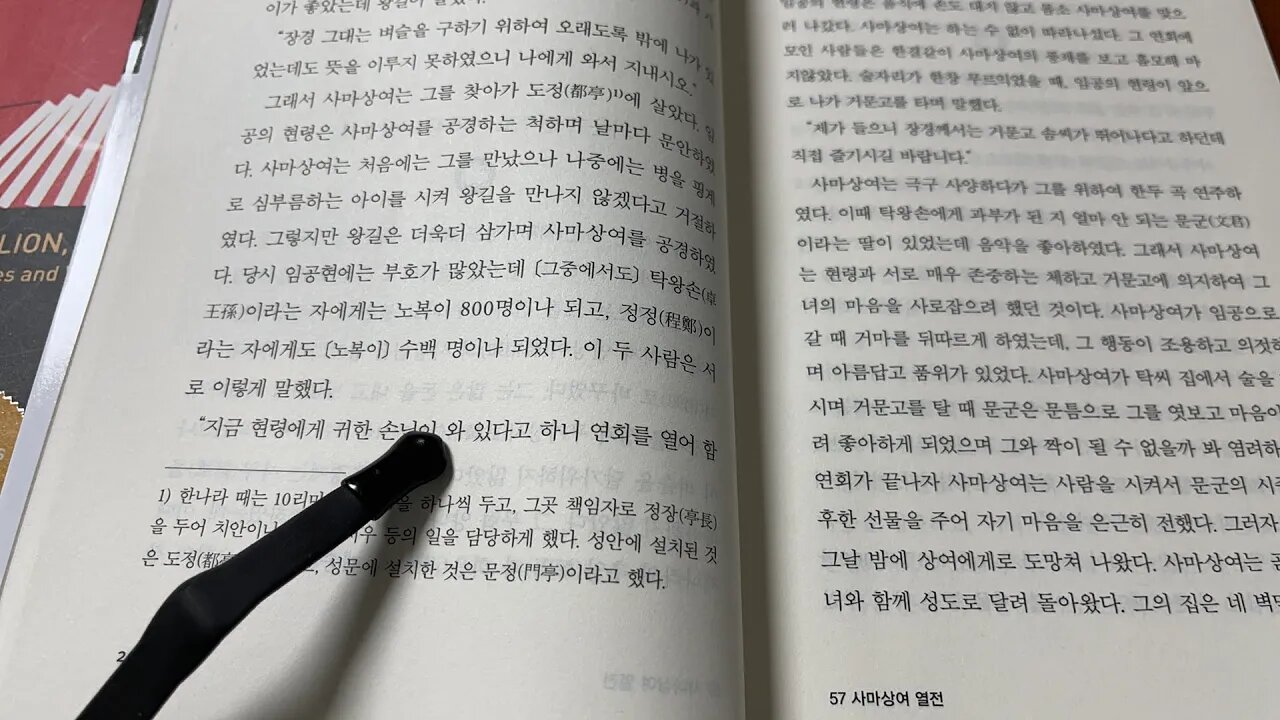 LION,
es and
s
이가 좋았는데 왕길이
“장경 그대는 벼슬을 구하기 위하여 오래도록 밖에 나가 있
었는데도 뜻을 이루지 못하였으니 나에게 와서 지내시오.”
그래서 사마상여는 그를 찾아가 도정(都亭)1)에 살았다. 임
공의 현령은 사마상여를 공경하는 척하며 날마다 문안하였
다. 사마상여는 처음에는 그를 만났으나 나중에는 병을 핑계
로 심부름하는 아이를 시켜 왕길을 만나지 않겠다고 거절하
였다. 그렇지만 왕길은 더욱더 삼가며 사마상여를 공경하였
다. 당시 임공현에는 부호가 많았는데 〔그중에서도〕 탁왕손(卓
王孫)이라는 자에게는 노복이 800명이나 되고, 정정(程鄭)이
라는 자에게도 〔노복이〕 수백 명이나 되었다. 이 두 사람은 서
로 이렇게 말했다.
“지금 현령에게 귀한 손님이 와 있다고 하니 연회를 열어 함
1) 한나라 때는 10리마 을 하나씩 두고, 그곳 책임자로 정장(亭長)
을 두어 치안이나 등의 일을 담당하게 했다. 성안에 설치된 것
은 도정(都亭 성문에 설치한 것은 문정(門亭)이라고 했다.
2
임공의 현령은 음식에 손도 대지 않고 몸소 사마상여를 맞으
러 나갔다. 사마상여는 하는 수 없이 따라나섰다. 그 연회에
모인 사람들은 한결같이 사마상여의 풍채를 보고 흠모해 마
지않았다. 술자리가 한창 무르익었을 때, 임공의 현령이 앞으
로 나가 거문고를 타며 말했다.
“제가 들으니 장경께서는 거문고 솜씨가 뛰어나다고 하던데
직접 즐기시길 바랍니다.”
사마상여는 극구 사양하다가 그를 위하여 한두 곡 연주하
였다. 이때 탁왕손에게 과부가 된 지 얼마 안 되는 문군(文君)
이라는 딸이 있었는데 음악을 좋아하였다. 그래서 사마상여
는 현령과 서로 매우 존중하는 체하고 거문고에 의지하여 그
녀의 마음을 사로잡으려 했던 것이다. 사마상여가 임공으로
갈 때 거마를 뒤따르게 하였는데, 그 행동이 조용하고 의젓하
며 아름답고 품위가 있었다. 사마상여가 탁씨 집에서 술을
시며 거문고를 탈 때 문군은 문틈으로 그를 엿보고 마음이
려 좋아하게 되었으며 그와 짝이 될 수 없을까 봐 염려하
연회가 끝나자 사마상여는 사람을 시켜서 문군의 시
후한 선물을 주어 자기 마음을 은근히 전했다. 그러자
그날 밤에 상여에게로 도망쳐 나왔다. 사마상여는
녀와 함께 성도로 달려 돌아왔다. 그의 집은 네 벽만
57 사마상여 열전